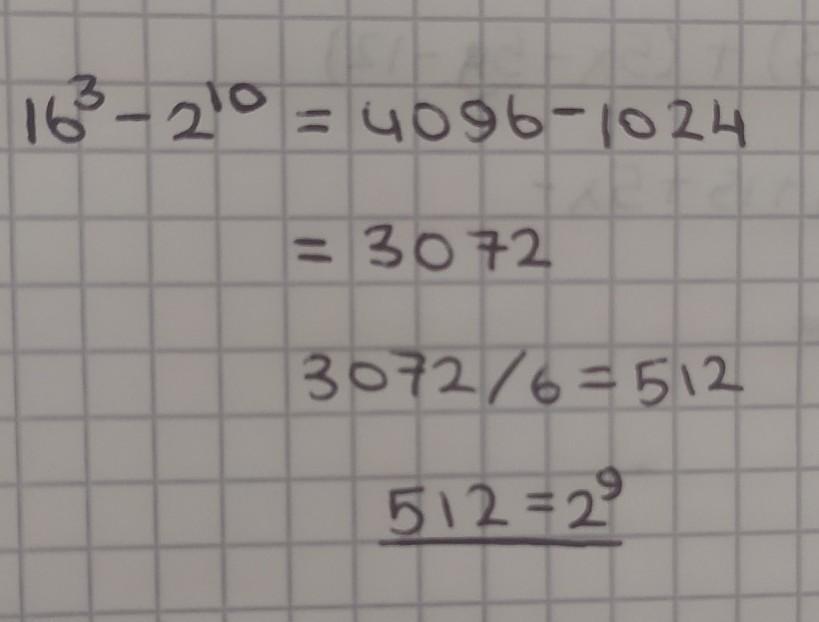 16³ - 2¹⁰ = 4096 - 1024
= 3072
3072/6 = 512
512 = 2⁹